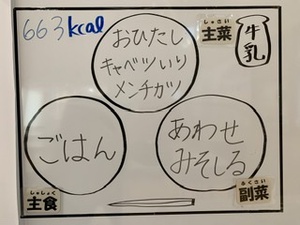 663kcal
しゅさい
主菜
牛乳
おひたし
キャベツいり
メンチカツ
ごはん
しゅしょく
主食
あわせ
みそしる
ふくさい
副菜